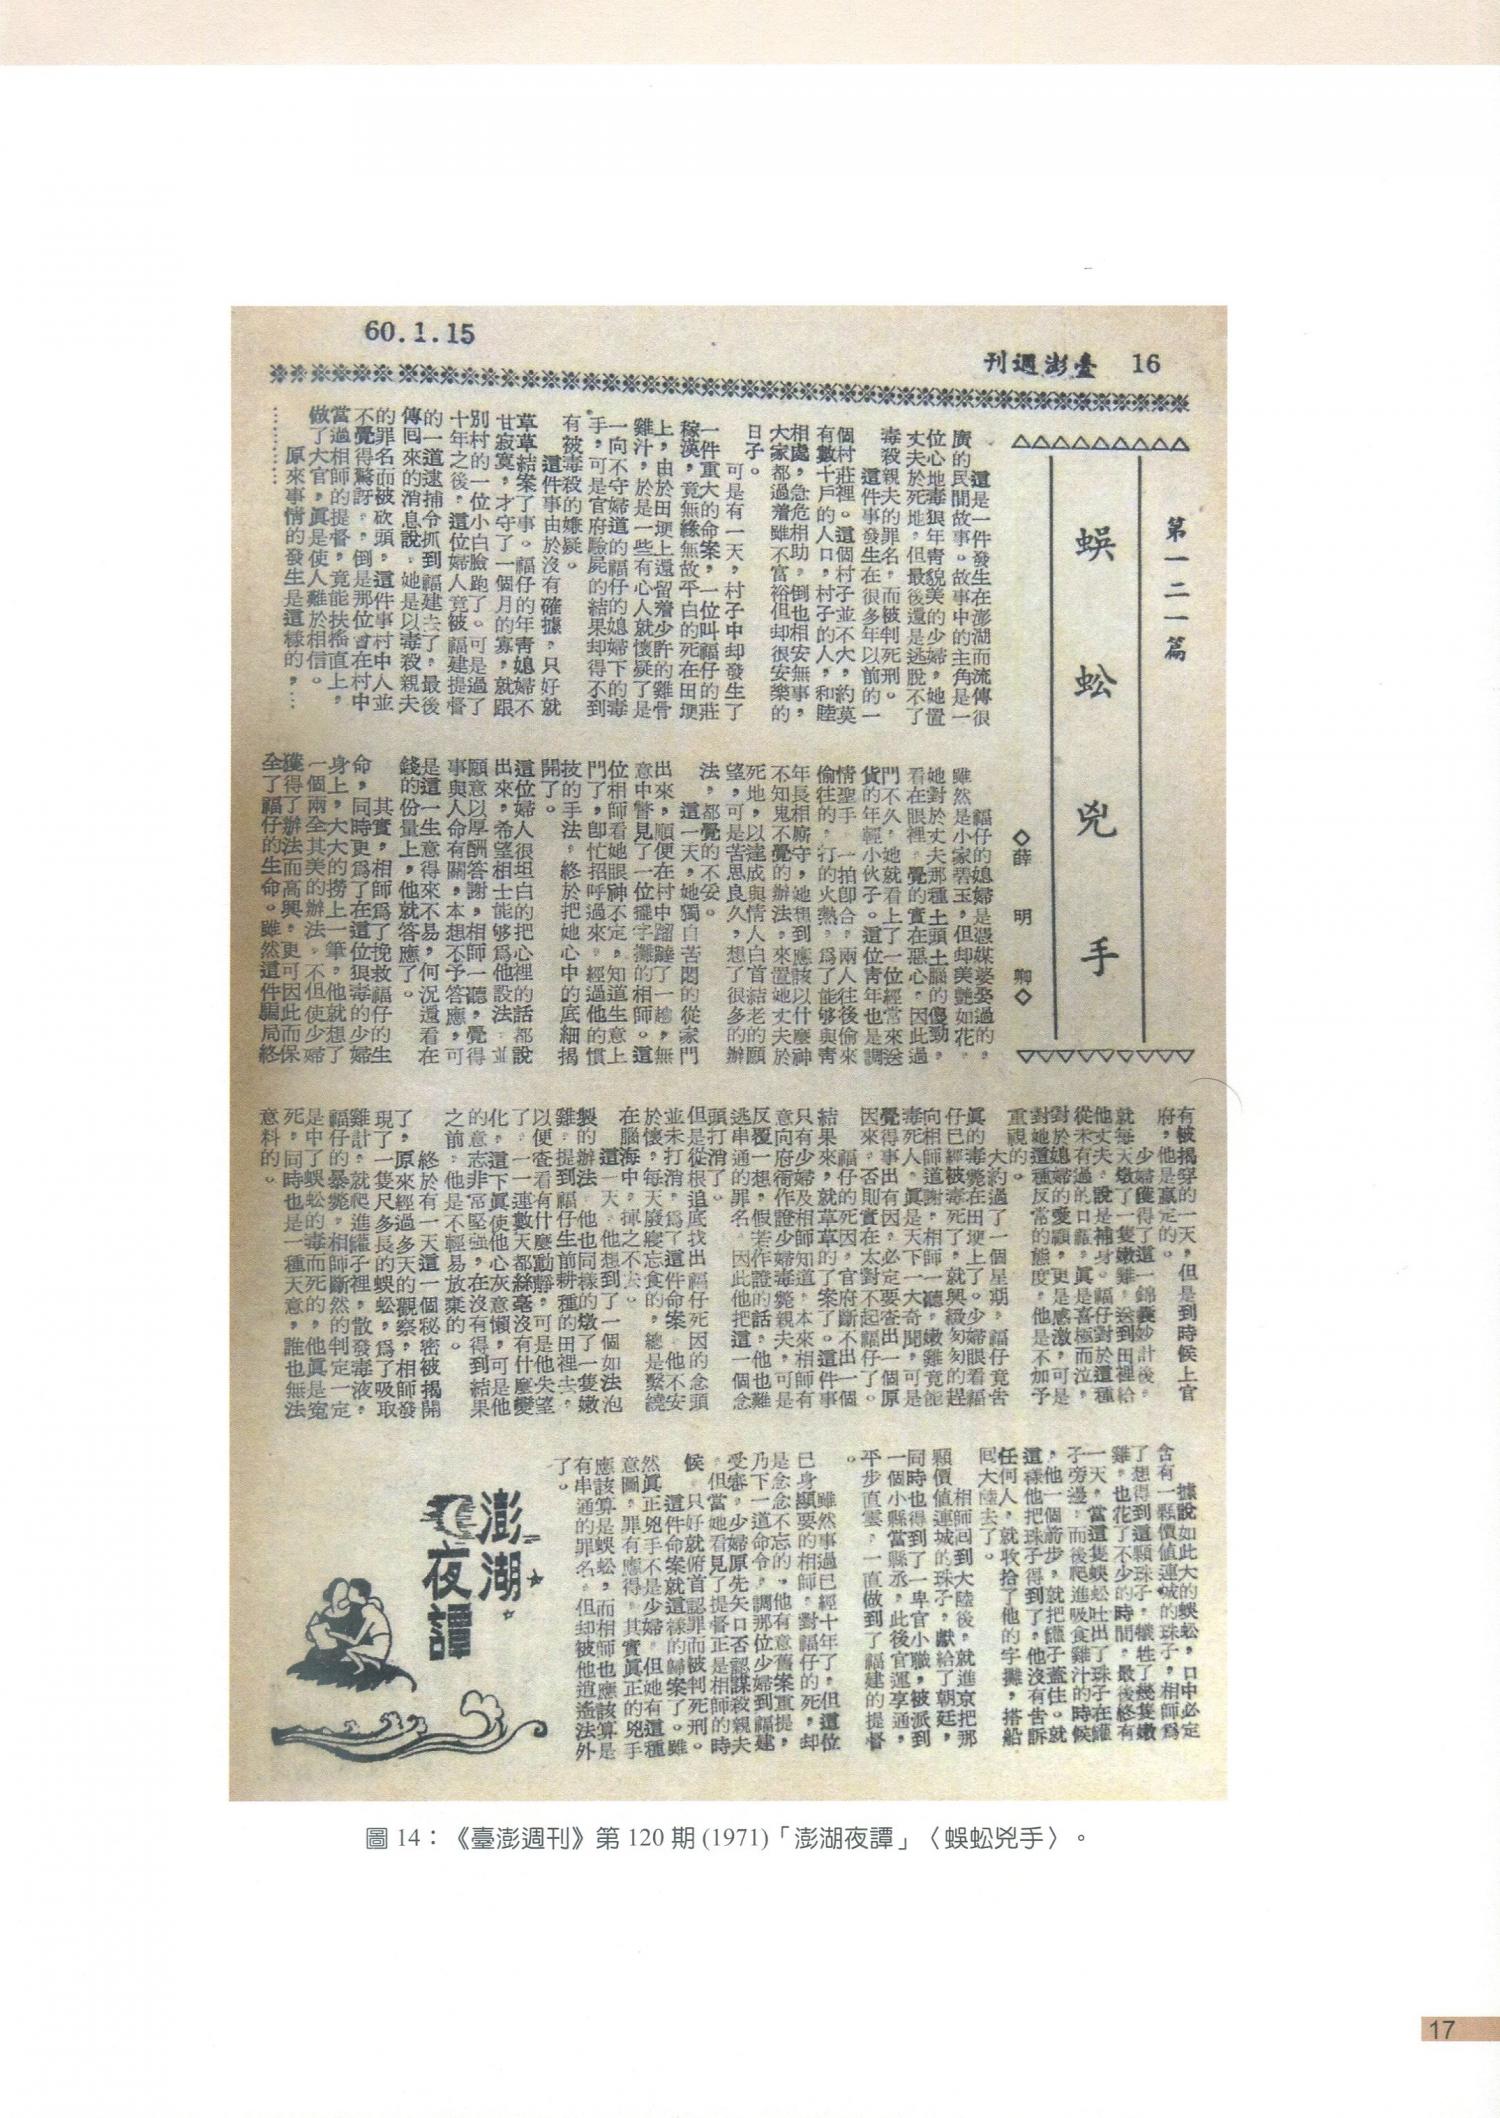 60.1.15
臺澎週刊 16
第一二一篇
蜈蚣兇手
◇薛明卿◇
這是一件發生在澎湖而流傳很
廣的民間故事。故事中的主角是一
位心地毒狠年青貌美的少婦，她置
丈夫於死地，但最後還是逃脫不了
毒殺親夫的罪名，而被判死刑。
這件事發生在很多年以前的一
個村莊裡。這個村子並不大，約莫
有數千戶的人口，村子的人，和睦
相處，急危相助，倒也相安無事，
大家都過着雖不富裕但却很安樂的
日子。
可是有一天，村子中却發生了
一件重大的命案，一位叫福仔的莊
稼漢，竟無緣無故平白的死在田埂
上，由於田埂上還留着少許的雞骨
雞汁，於是一些有心人就懷疑了是
一向不守婦道的福仔的媳婦下的毒
手，可是官府驗屍的結果却得不到
有被毒殺的嫌疑。
這件事由於沒有確據，只好就
草草結案了事。福仔的年青媳婦不
甘寂寞，才守了一個月的寡，就跟
別村的一位小白臉跑了。可是過了
十年之後，這位婦人竟被福建提督
的一道逮捕令抓到福建去了，最後
傳回來的消息說，她是以毒殺親夫
的罪名而被砍頭，這件事村中人並
不覺得驚訝。倒是那位曾在村中
當過相師的提督，竟能扶搖直上，
做了大官，眞是使人難於相信。
原來事情的發生是這樣的，…
…………
福仔的媳婦是憑媒婆娶過的，
雖然是小家碧玉，但却美艷如花，
她對於丈夫那種土頭土腦的傻勁，
看在眼裡，覺的實在惡心，因此過
門不久，她就看上了一位經常來送
貨的年輕小伙子。這位青年也是調
情聖手，一拍卽合，兩人往後偷來
偷往的，打的火熱，爲了能够與青
年長相廝守，她想到應該以什麼神
不知鬼不覺的辦法，來置她丈夫於
死地，以達成與情人白首結老的願
望，可是苦思良久，想了很多的辦
法，都覺的不妥。
這一天，她獨自苦悶的從家門
出來，順便在村中蹓躂了一趟，無
意中瞥見了一位擺字攤的相師。這
位相師看她眼神不定，知道生意上
門了，卽忙招呼過來，經過他的慣
技的手法，終於把她心中的底細揭
開了。
這位婦人很坦白的把心裡的話都說
出來，希望相士能够爲他設法，並
願意以厚酬答謝，相師一聽，覺得
事與人命有關，本想不予答應，可
是這一生意得來不易，何況還看在
錢的份量上，他就答應了。
其實，相師爲了挽救福仔的生
命，同時更爲了在這位狠毒的少婦
身上，大大的撈上一筆，他就想了
一個兩全其美的辦法，不但使少婦
獲得了辦法而高興，更可因此而保
全了福仔的生命。雖然這件騙局終
有被揭穿的一天，但是到時候上官
府，他是贏定的。
少婦獲得了這一錦囊妙計後，
就每天燉了一隻嫩雞，送到田裡給
他丈夫，說是補身。福仔對於這種
從未有過的口福，眞是喜極而泣，
對於媳婦的愛顧，更是感激，可是
對她這種反常的態度，他是不加予
重視的。
大約過了一個星期，福仔竟吿
眞的毒斃在田埂上了。少婦眼看福
仔已經被毒死了，就興緻匆匆的趕
向相師道謝，相師一聽，嫩雞竟能
毒死人，眞是天下一大奇聞，可是
覺得事出有因，必定要查出一個原
因來，否則實在太對不起福仔了。
福仔的死因，官府斷不出一個
結果來，就草草的了案了。這件事
只有少婦及相師知道，本來相師有
意向府衙作證少婦毒斃親夫，可是
反覆一想，假若作證的話，他也難
逃串通的罪名，因此他把這一個念
頭打消了。
但是從根追底找出福仔死因的念頭
並未打消，爲了這件命案，他不安
於懷，每天廢寢忘食的，總是繫繞
在腦海中，揮之不去。
這一天，他想到了一個如法泡
製的辦法，他也同樣的燉了一隻嫩
雞，提到福仔生前耕種的田裡去，
以便查看有什麼動靜，可是他失望
了，一連數天都絲毫沒有什麼變
化，這下眞使他心灰意懶，可是他
的意志非常堅強，在沒有得到結果
之前，他是不輕易放棄的。
終於有一天這一個秘密被揭開
了，原來經過多天的觀察，相師發
現了一隻尺多長的蜈蚣，爲了吸取
雞汁，就爬進罐子裡，散發毒液，
福仔的暴斃，相師斷然的判定一定
是中了蜈蚣的毒而死的，他眞是寃
死，同時也是一種天意，誰也無法
意料的。
據說如此大的蜈蚣，口中必定
含有一顆價值連城的珠子，相師爲
了想得到這顆珠子，犧牲了幾隻嫩
雞，也花了不少的時間，最後終有
一天，當這隻蜈蚣吐出了珠子在罐
子旁邊，而後爬進吸食雞汁的時候
，他一個箭步，就把罐子蓋住。就
這樣他把珠子得到了，他沒有吿訴
任何人，就收拾了他的字攤，搭船
回大陸去了。
相師回到大陸後，就進京把那
顆價值連城的珠子，獻給了朝廷，
同時也得到了一卑官小職，被派到
一個小縣當縣丞，此後官運享通，
平步直雲，一直做到了福建的提督
。
雖然事過已經十年了，但這位
已身顯要的相師，對福仔的死，却
是念念不忘的，他有意舊案重提，
乃下一道命令，調那位少婦到福建
受審，少婦原先矢口否認謀殺親夫
，但當她看見了提督正是相師的時
候，只好就俯首認罪而被判死刑。
這件命案就這樣的歸案了。雖
然眞正兇手不是少婦，但她有這種
意圖，罪有應得，其實眞正的兇手
應該算是蜈蚣，而相師也應該算是
有串通的罪名，但却被他逍遙法外
了。
澎湖
夜譚
圖 14：《臺澎週刊》第 120 期 (1971)「澎湖夜譚」〈蜈蚣兇手〉。
17